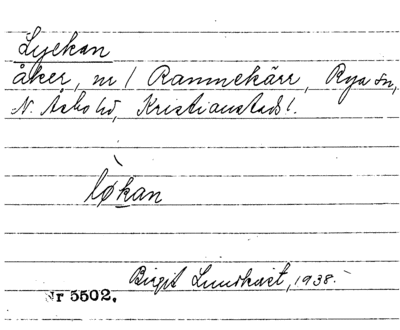 Lyekan
åker, nr 1 Rammekärr, Rya sn,
N. Åsbo hd, Kristianstads l.
lø̀kan
Birgit Lundkvist, 1938.
Nr 5502.